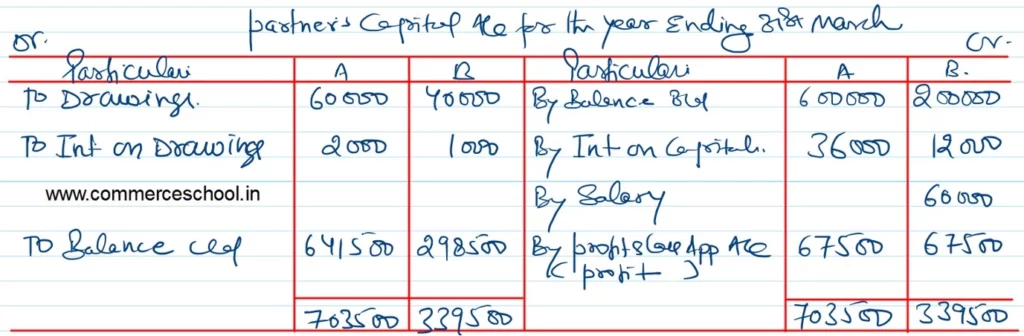 Partner's Capital A/c for the year Ending 31st March
Dr. Cr.
Particulars A B Particulars A B.
To Drawings. 60000 40000 By Balance b/d 600000 200000
To Int on Drawings 2000 1000 By Int on Capital. 36000 12000
www.commerceschool.in By Salary 60000
To Balance c/d 641500 298500 By profit & Loss App A/c 67500 67500
(profit)
703500 339500 703500 339500